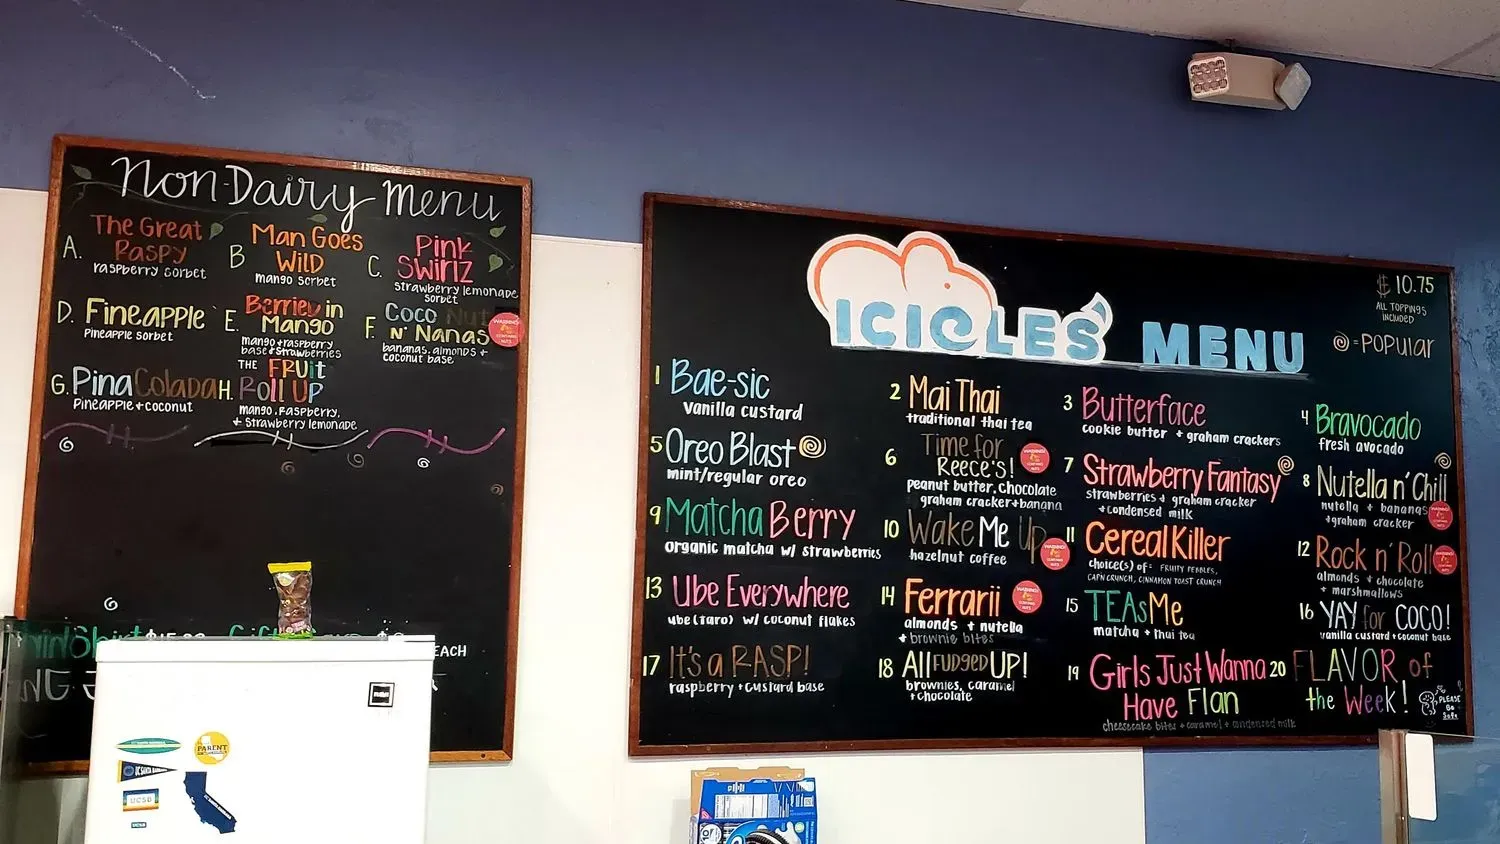 Non-Dairy Menu
A. The Great
Raspy
raspberry sorbet
B Man Goes
Wild
mango sorbet
C. Pink
Swirlz
strawberry lemonade
sorbet
D. Fineapple
Pineapple sorbet
E. Berried in
Mango
mango + raspberry
base + strawberries
F. Coco Nut
n' Nanas
bananas, almonds +
coconut base
WARNING!
G. Pina Colada
Pineapple + coconut
H. THE FRUIT
ROLL UP
mango, raspberry,
+ strawberry lemonade
EACH
PARENT
UC SANTA BARBARA
UCSB
ICICLES MENU
$ 10.75
ALL TOPPINGS
INCLUDED
= POPULAR
1 Bae-sic
vanilla custard
2 Mai Thai
traditional thai tea
3 Butterface
cookie butter + graham crackers
4 Bravocado
fresh avocado
5 Oreo Blast
mint/regular oreo
6 Time for
Reece's!
peanut butter, chocolate
graham cracker + banana
WARNING!
7 Strawberry Fantasy
strawberries + graham cracker
+ condensed milk
8 Nutella n' Chill
nutella + bananas
+ graham cracker
WARNING!
9 Matcha Berry
organic matcha w/ strawberries
10 Wake Me Up
hazelnut coffee
WARNING!
11 Cereal Killer
choice(s) of: FRUITY PEBBLES,
CAP'N CRUNCH, CINNAMON TOAST CRUNCH
12 Rock n' Roll
almonds + chocolate
+ marshmallows
WARNING!
13 Ube Everywhere
ube (taro) w/ coconut flakes
14 Ferrarii
almonds + nutella
+ brownie bites
WARNING!
15 TEAs Me
matcha + thai tea
16 YAY for COCO!
vanilla custard + coconut base
17 It's a RASP!
raspberry + custard base
18 All FUDGED UP!
brownies, caramel
+ chocolate
19 Girls Just Wanna
Have Flan
cheesecake bites + caramel + condensed milk
20 FLAVOR of
the Week!
PLEASE
Be
Safe